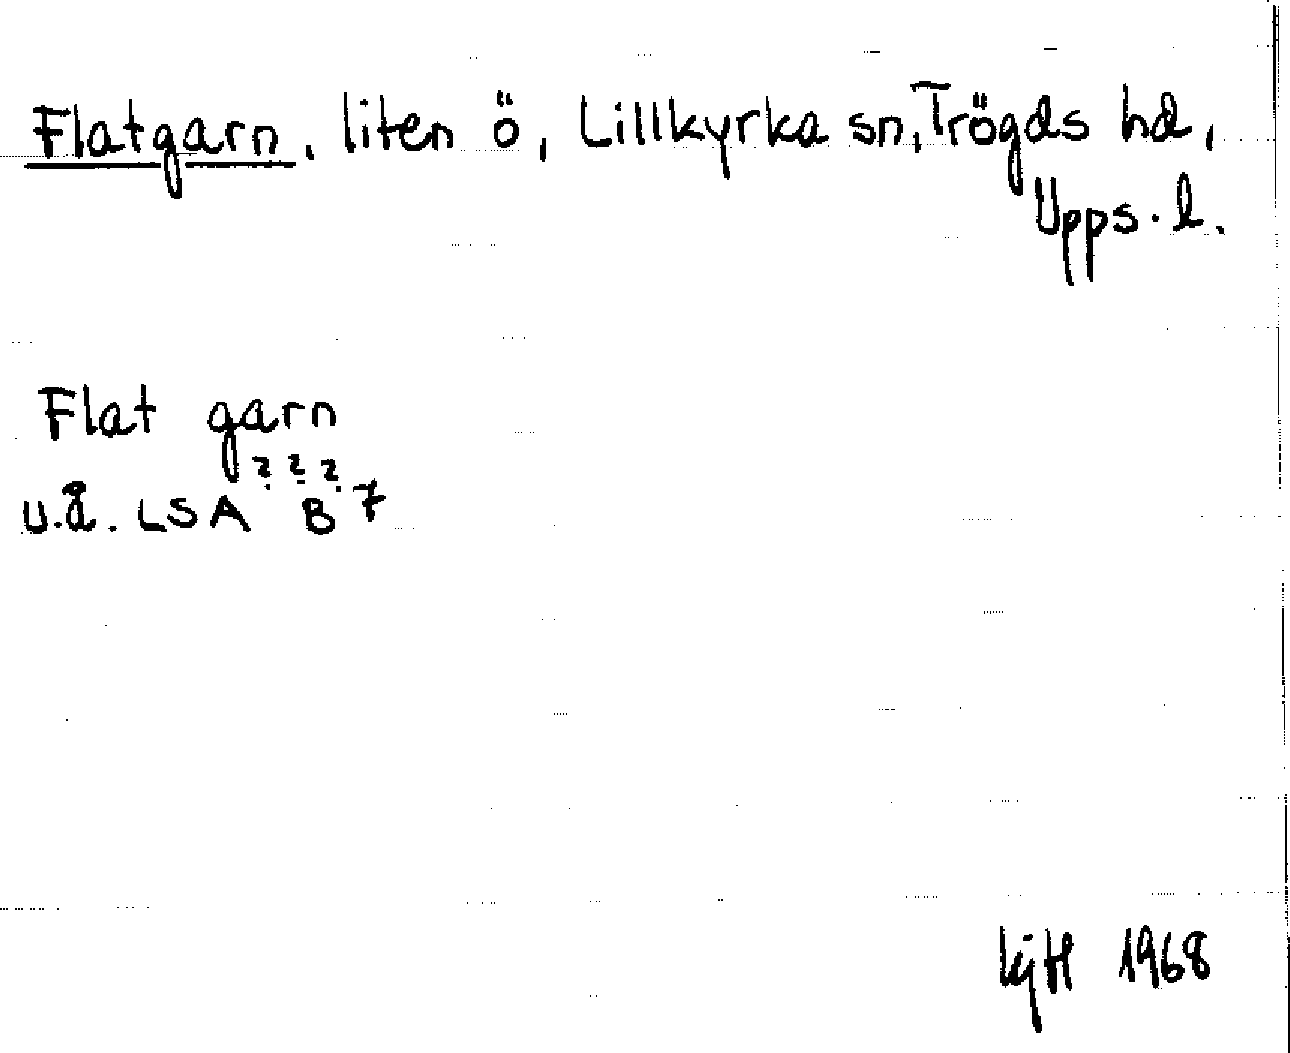 Flatgarn, liten ö, Lillkyrka sn, Trögds hd,
Upps. l.
Flat garn
? ? ?
u.å. LSA B 7
1968